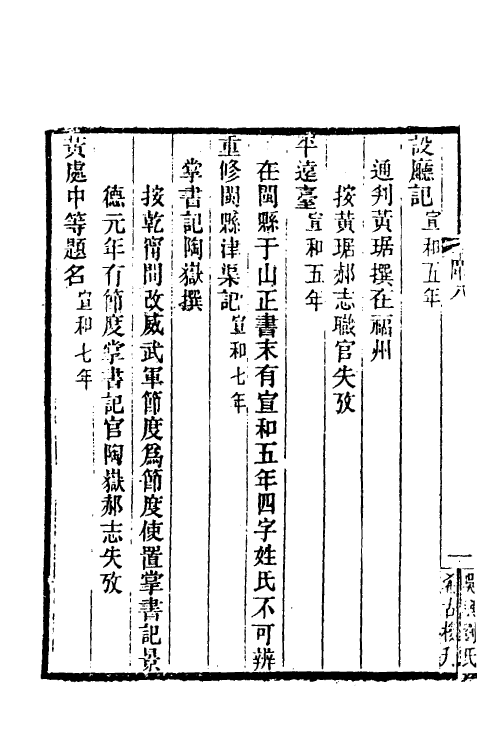 設廳記宣和五年
通判黃琚撰在福州
按黃琚郝志職官失攷
平遠臺宣和五年
在閩縣于山正書末有宣和五年四字姓氏不可辨
重修閩縣津渠記宣和七年
掌書記陶嶽撰
按乾甯間改威武軍節度爲節度使置掌書記景
德元年有節度掌書記官陶嶽郝志失攷
黃處中等題名宣和七年